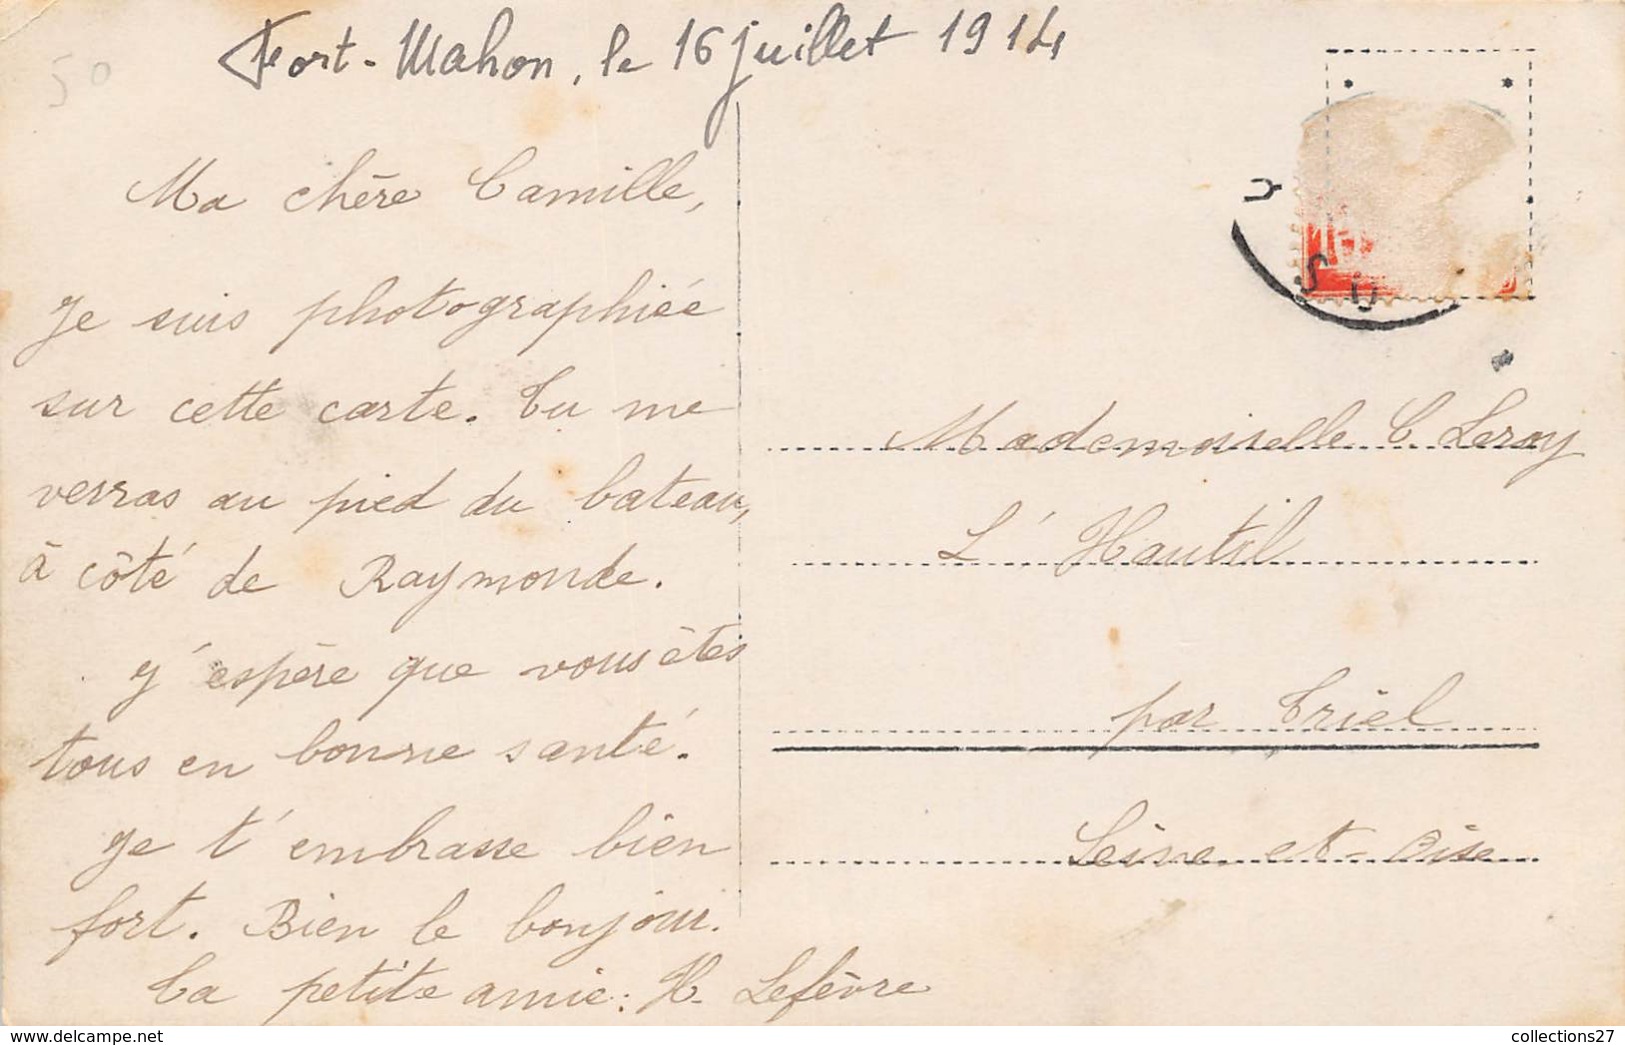 50
Fort-Mahon, le 16 juillet 1914
Ma chère Camille,
Je suis photographiée
sur cette carte. Tu me
verras au pied du bateau,
à côté de Raymonde.
J'espère que vous êtes
tous en bonne santé.
Je t'embrasse bien
fort. Bien le bonjour.
Ta petite amie: H. Lefèvre
Mademoiselle C. Leroy
L'Hautil
par Triel
Seine-et-Oise
collections27